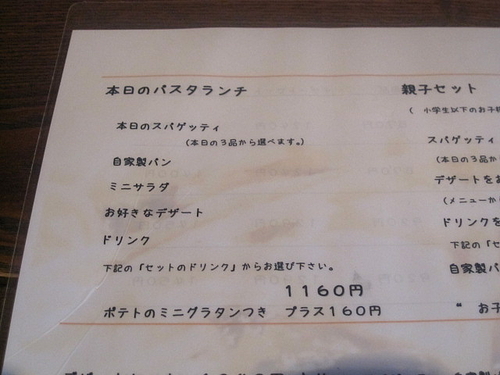 本日のパスタランチ
本日のスパゲッティ
(本日の3品から選べます。)
自家製パン
ミニサラダ
お好きなデザート
ドリンク
下記の「セットのドリンク」からお選び下さい。
1160円
ポテトのミニグラタンつき プラス160円
親子セット
( 小学生以下のお子
スパゲッティ
(本日の3品
デザートをお
(メニューか
ドリンクを
下記の「セ
自家製パ
" お子